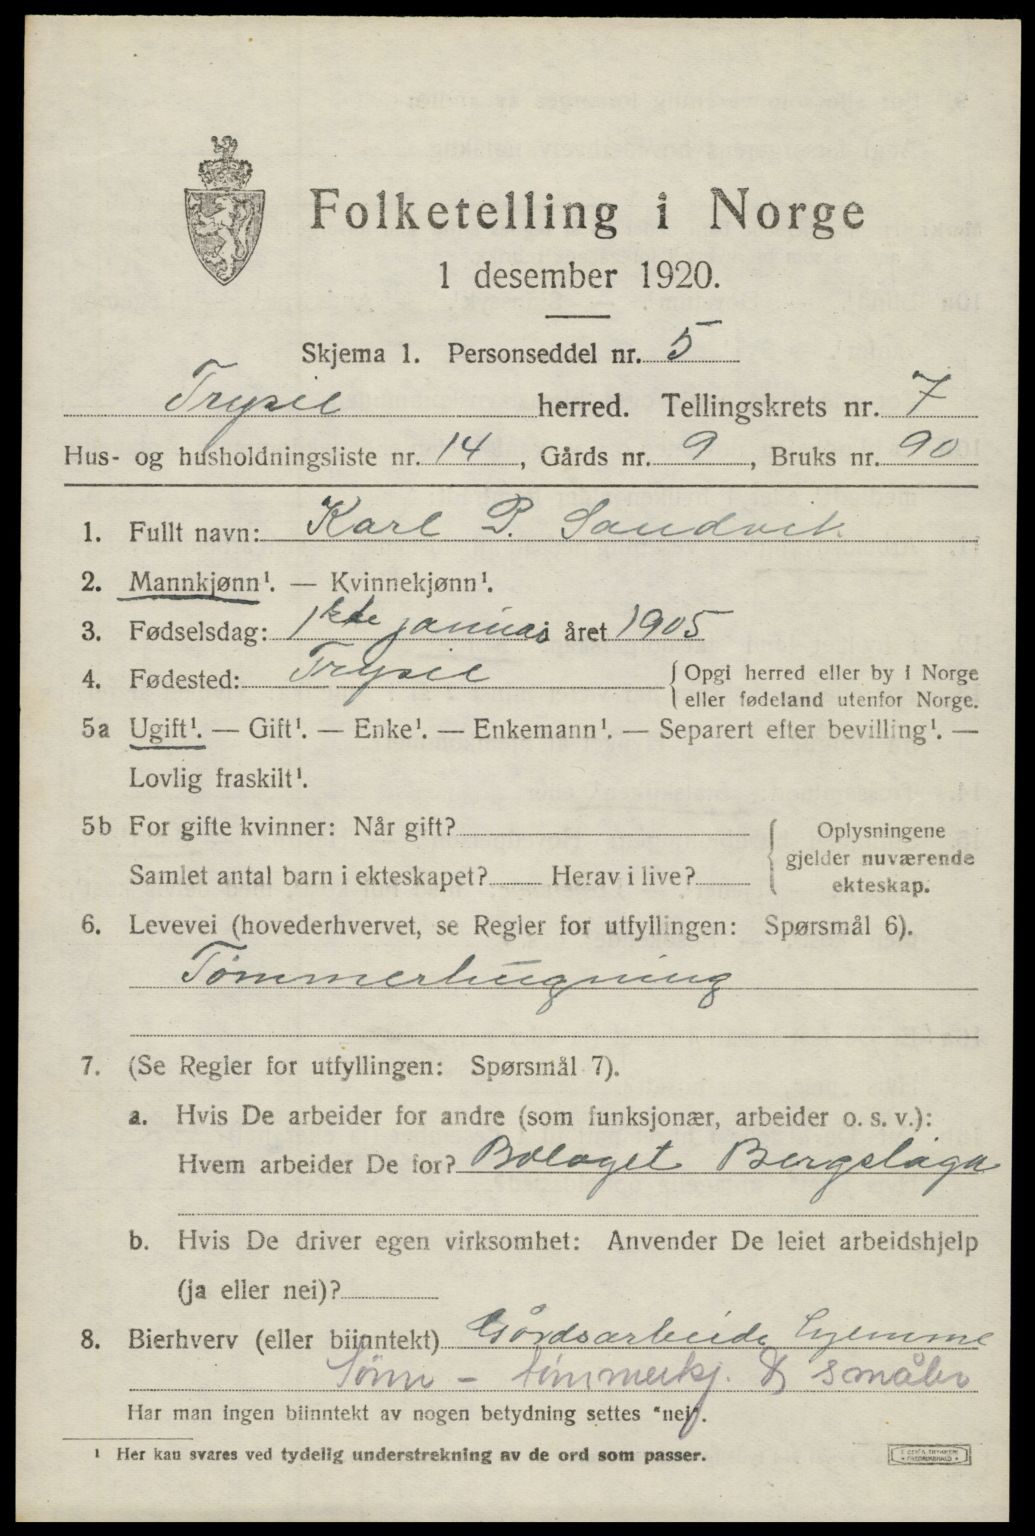 Folketelling i Norge
1 desember 1920.
Skjema 1. Personseddel nr. 5
Trysil herred. Tellingskrets nr. 7
Hus- og husholdningsliste nr. 14, Gårds nr. 9, Bruks nr. 90
1. Fullt navn: Karl P. Sandvik
2. Mannkjønn¹. — Kvinnekjønn¹.
3. Fødselsdag: 1ste januar året 1905
4. Fødested: Trysil { Opgi herred eller by i Norge
eller fødeland utenfor Norge.
5a Ugift¹. — Gift¹. — Enke¹. — Enkemann¹. — Separert efter bevilling¹. —
Lovlig fraskilt¹.
5b For gifte kvinner: Når gift? { Oplysningene
gjelder nuværende
Samlet antal barn i ekteskapet? Herav i live?
ekteskap.
6. Levevei (hovederhvervet, se Regler for utfyllingen: Spørsmål 6).
Tømmerhugning
7. (Se Regler for utfyllingen: Spørsmål 7).
a. Hvis De arbeider for andre (som funksjonær, arbeider o. s. v.):
Hvem arbeider De for? Bolaget Bergslaga
b. Hvis De driver egen virksomhet: Anvender De leiet arbeidshjelp
(ja eller nei)?
8. Bierhverv (eller biinntekt) Gårdsarbeide hjemme
Sønn — tømmerkj. & småbr
Har man ingen biinntekt av nogen betydning settes "nei".
¹ Her kan svares ved tydelig understrekning av de ord som passer.